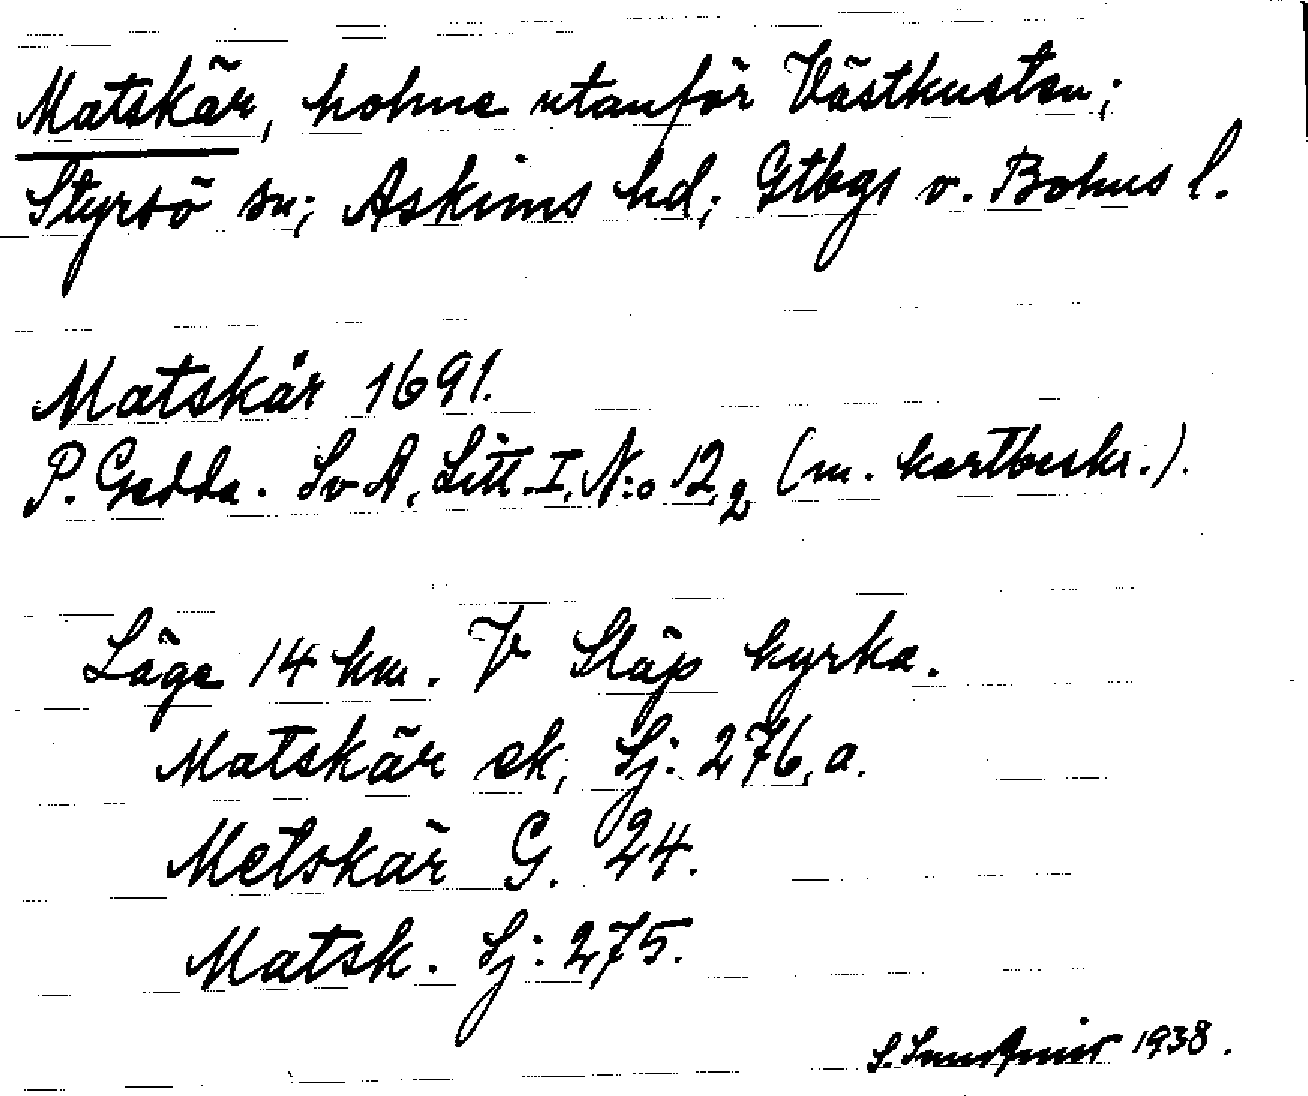 Matskär, holme utanför Västkusten;
Styrsö sn; Askims hd; Gtbgs o. Bohus l.
Matskär 1691.
P. Gedda. Sv A, Litt. I, N:o 12,2 (m. kartbeskr.).
Läge 14 km. V Släp kyrka.
Matskär ek, Sj: 276,a.
Metskär G. 24.
Matsk. Sj: 275.
S. 1938.